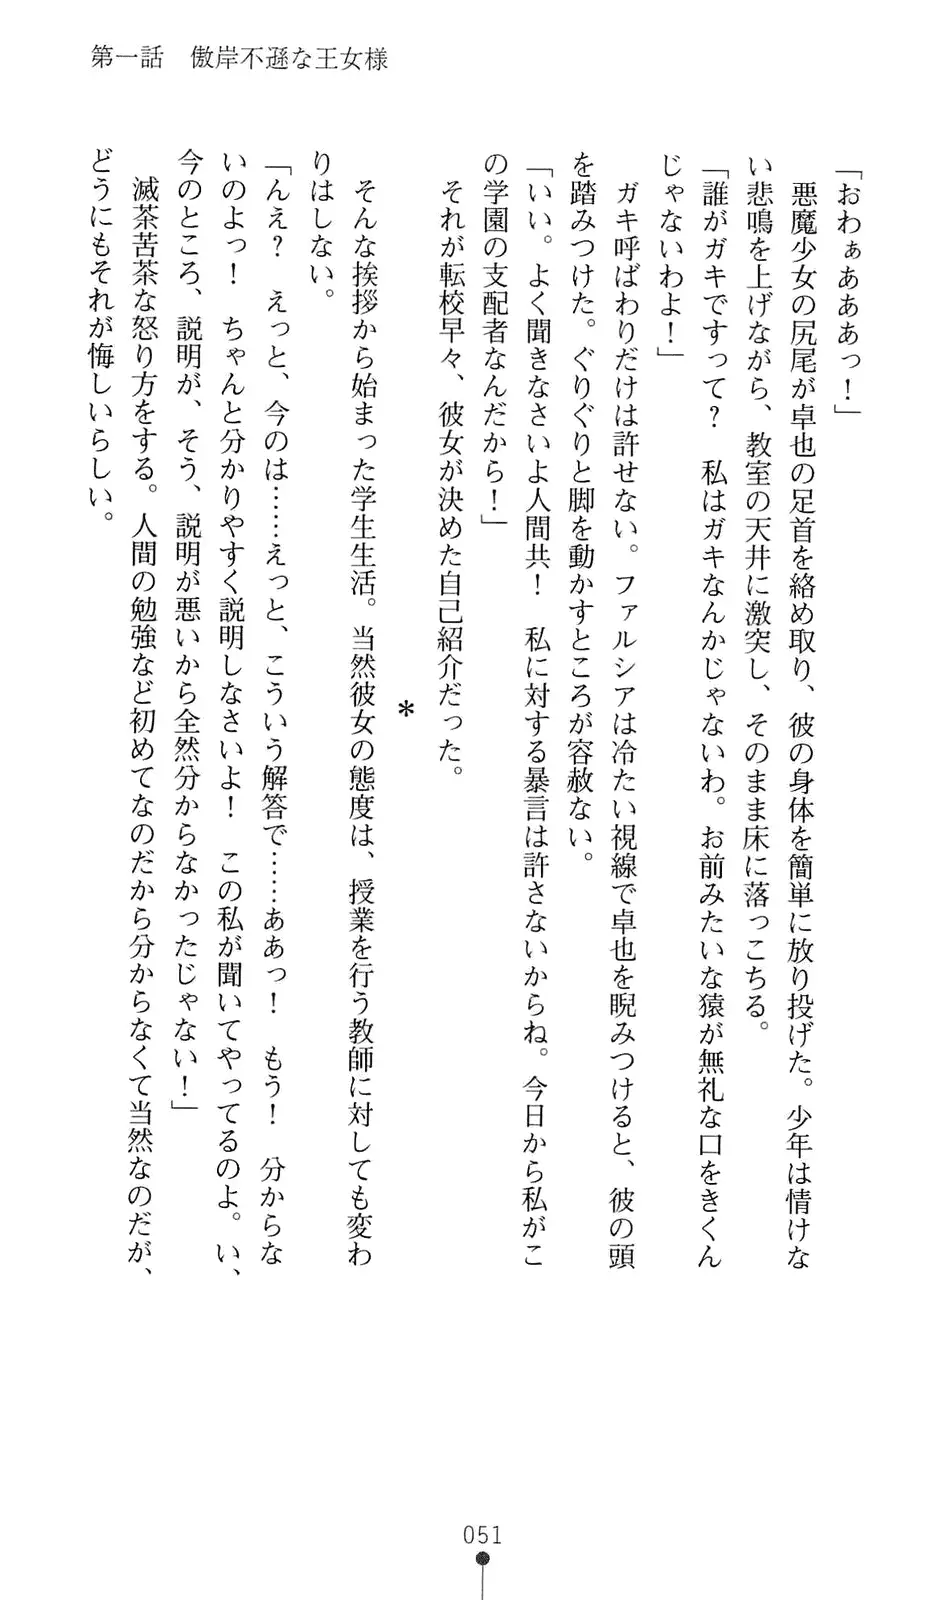 第一話　傲岸不遜な王女様
「おわぁあああっ！」
　悪魔少女の尻尾が卓也の足首を絡め取り、彼の身体を簡単に放り投げた。少年は情けな
い悲鳴を上げながら、教室の天井に激突し、そのまま床に落っこちる。
「誰がガキですって？　私はガキなんかじゃないわ。お前みたいな猿が無礼な口をきくん
じゃないわよ！」
　ガキ呼ばわりだけは許せない。ファルシアは冷たい視線で卓也を睨みつけると、彼の頭
を踏みつけた。ぐりぐりと脚を動かすところが容赦ない。
「いい。よく聞きなさいよ人間共！　私に対する暴言は許さないからね。今日から私がこ
の学園の支配者なんだから！」
　それが転校早々、彼女が決めた自己紹介だった。
＊
　そんな挨拶から始まった学生生活。当然彼女の態度は、授業を行う教師に対しても変わ
りはしない。
「んえ？　えっと、今のは……えっと、こういう解答で……ああっ！　もう！　分からな
いのよっ！　ちゃんと分かりやすく説明しなさいよ！　この私が聞いてやってるのよ。い、
今のところ、説明が、そう、説明が悪いから全然分からなかったじゃない！」
　滅茶苦茶な怒り方をする。人間の勉強など初めてなのだから分からなくて当然なのだが、
どうにもそれが悔しいらしい。
051